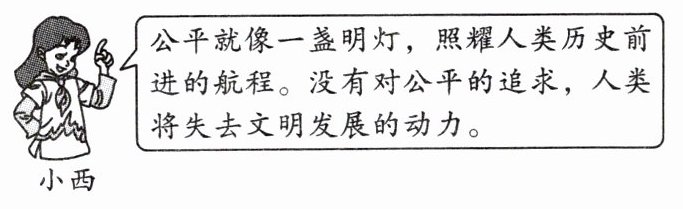 公平就像一盏明灯，照耀人类历史前
进的航程。没有对公平的追求，人类
将失去文明发展的动力。
小西